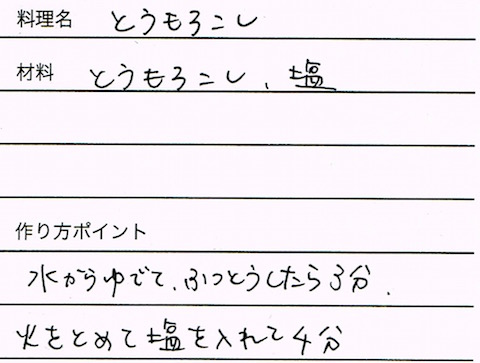 料理名 とうもろこし
材料 とうもろこし、塩
作り方ポイント
水からゆでて、ふっとうしたら3分、
火をとめて塩を入れて4分